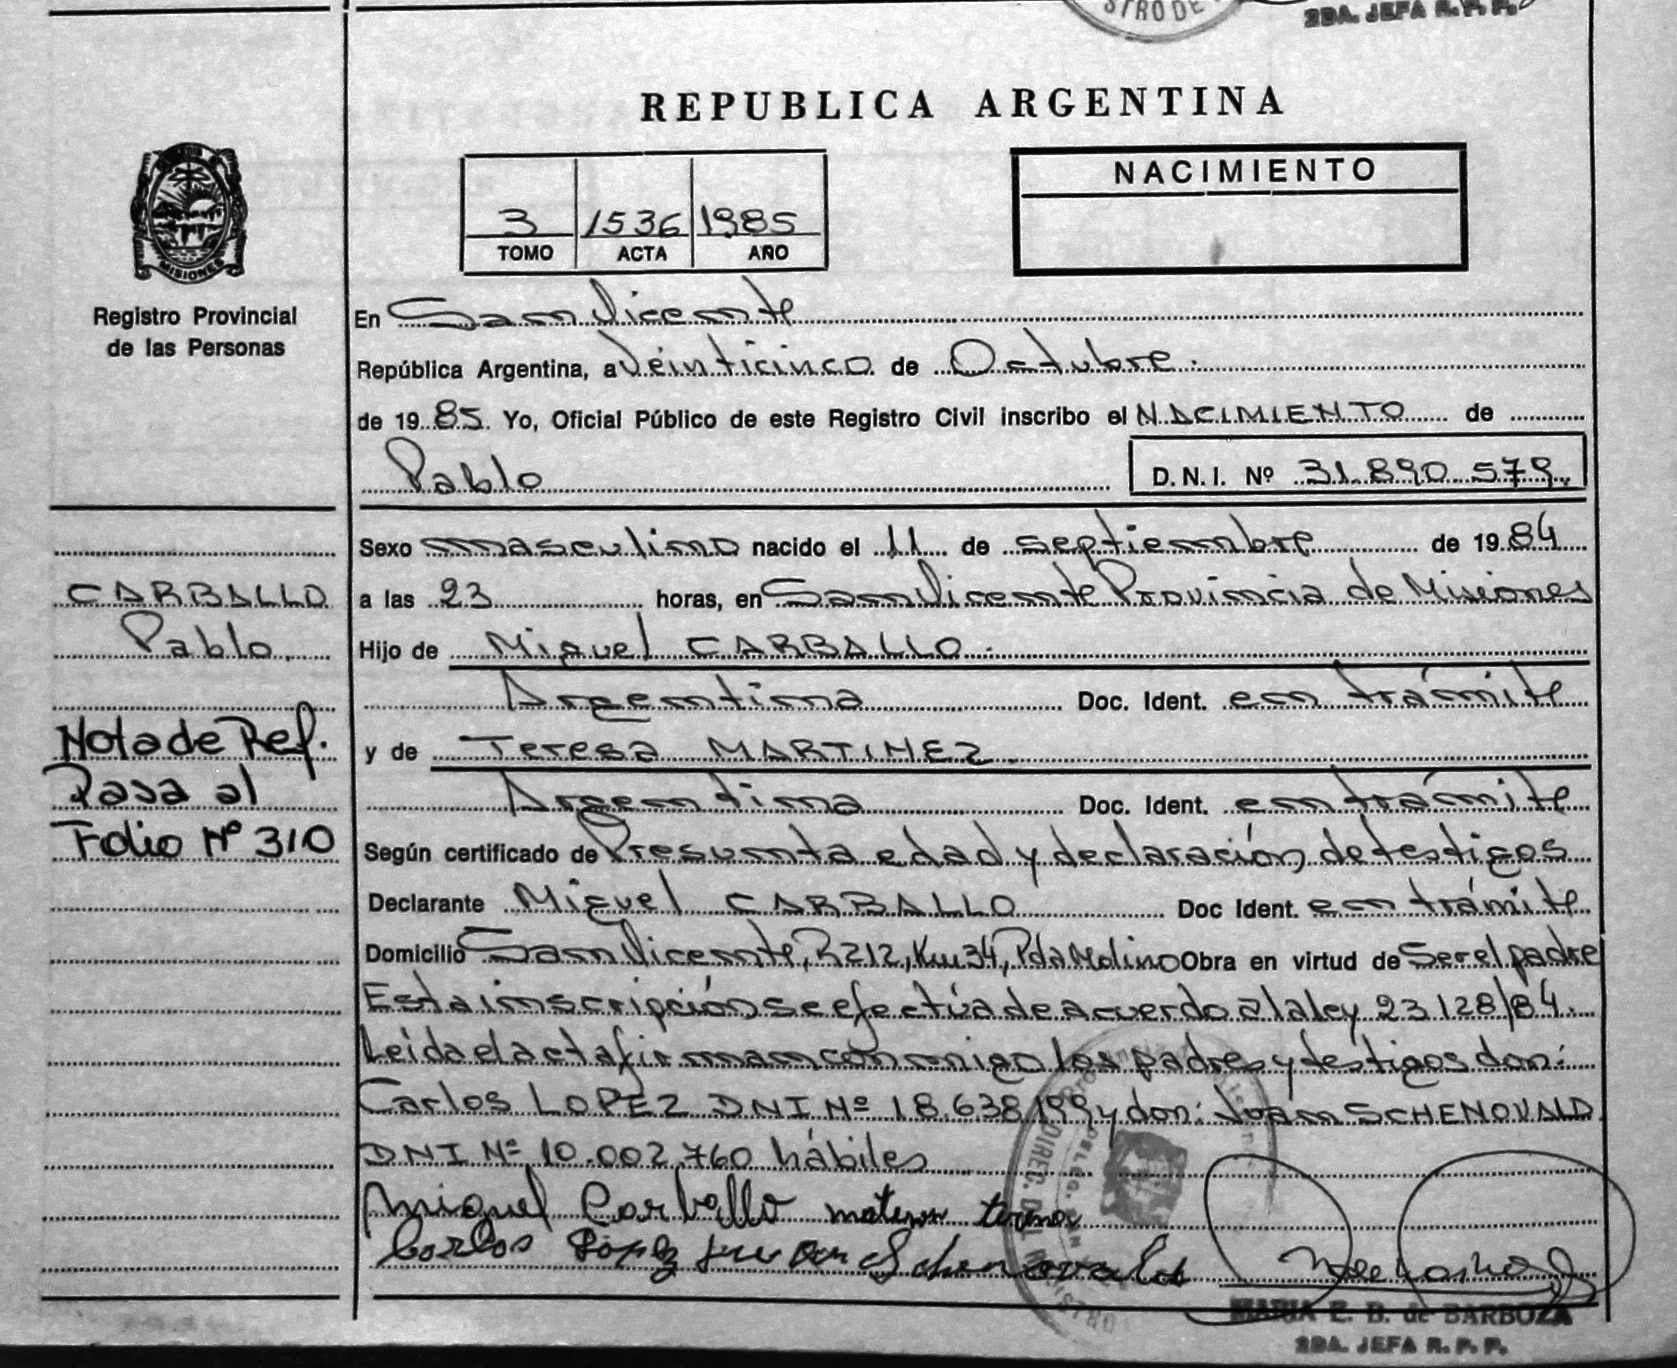 STRO DE
2DA. JEFA R.P.P.
REPUBLICA ARGENTINA
MISIONES
Registro Provincial
de las Personas
3 1536 1985
TOMO ACTA AÑO
NACIMIENTO
En San Vicente
República Argentina, a Veinticinco de Octubre.
de 19 85. Yo, Oficial Público de este Registro Civil inscribo el NACIMIENTO de
Pablo
D.N.I. Nº 31.890.579.
Sexo masculino nacido el 11 de septiembre de 19 84
CARBALLO
Pablo.
a las 23 horas, en San Vicente Provincia de Misiones
Hijo de Miguel CARBALLO.
Argentina Doc. Ident. en trámite
Nota de Ref.
Pasa al
Folio Nº 310
y de Teresa MARTINEZ.
Argentina Doc. Ident. en trámite
Según certificado de Presunta edad y declaración de testigos
Declarante Miguel CARBALLO Doc Ident. en trámite
Domicilio San Vicente, R212, Km34, Pda Molino Obra en virtud de Ser el padre
Esta inscripción se efectúa de acuerdo a la ley 23128/84.
Leida el acta firman conmigo los padres y testigos don:
Carlos LOPEZ DNI Nº 18.638.199 y don: Juan SCHENOVALD
DNI Nº 10.002.760 hábiles
Miguel Carballo
Carlos Lopez
MARIA E. B. de BARBOZA
2DA. JEFA R.P.P.